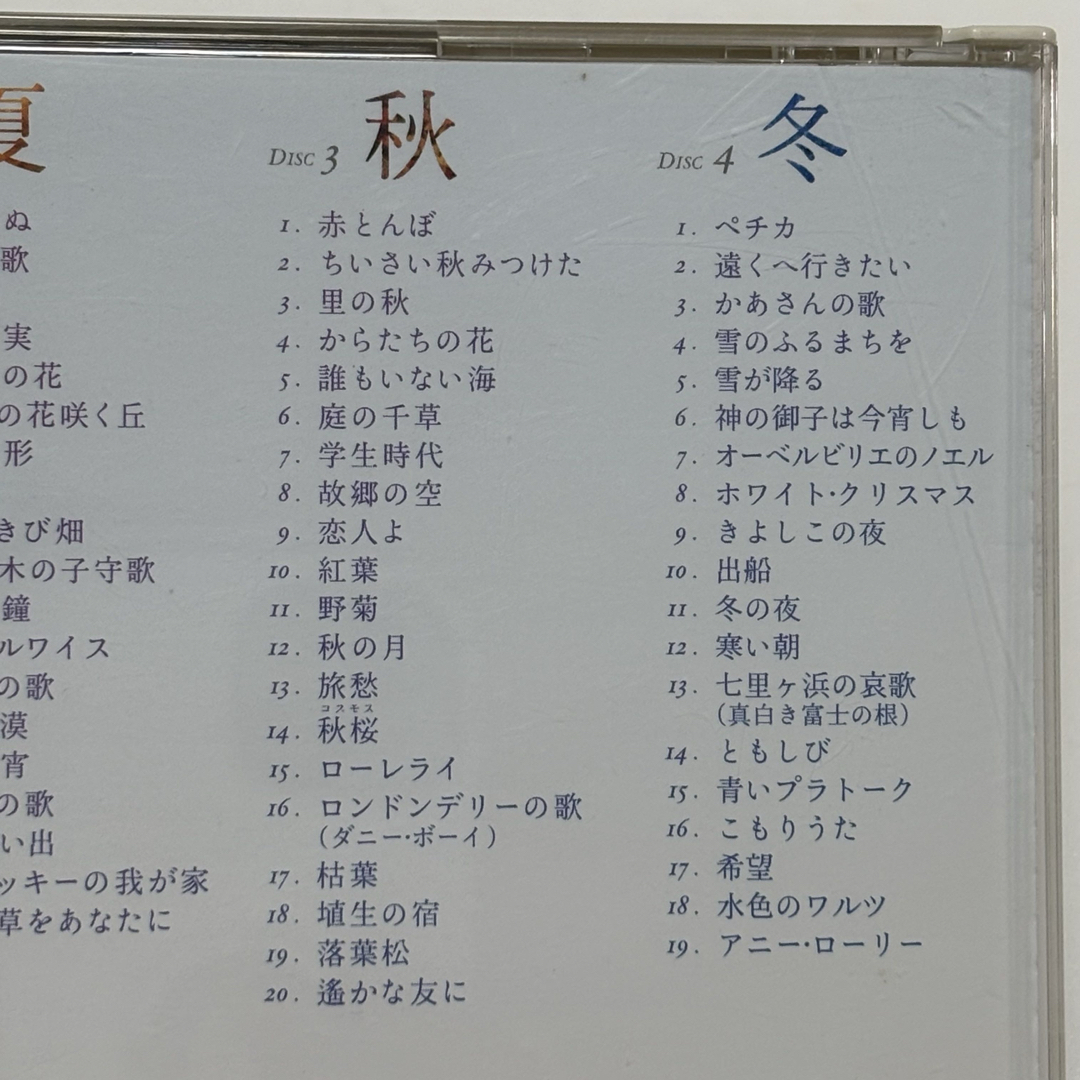 夏
ぬ
歌
実
の花
の花咲く丘
形
きび畑
木の子守歌
鐘
ルワイス
の歌
漠
宵
の歌
い出
ッキーの我が家
草をあなたに
DISC 3 秋
1. 赤とんぼ
2. ちいさい秋みつけた
3. 里の秋
4. からたちの花
5. 誰もいない海
6. 庭の千草
7. 学生時代
8. 故郷の空
9. 恋人よ
10. 紅葉
11. 野菊
12. 秋の月
13. 旅愁
コスモス
14. 秋桜
15. ローレライ
16. ロンドンデリーの歌
(ダニー・ボーイ)
17. 枯葉
18. 埴生の宿
19. 落葉松
20. 遙かな友に
DISC 4 冬
1. ペチカ
2. 遠くへ行きたい
3. かあさんの歌
4. 雪のふるまちを
5. 雪が降る
6. 神の御子は今宵しも
7. オーベルビリエのノエル
8. ホワイト・クリスマス
9. きよしこの夜
10. 出船
11. 冬の夜
12. 寒い朝
13. 七里ヶ浜の哀歌
(真白き富士の根)
14. ともしび
15. 青いプラトーク
16. こもりうた
17. 希望
18. 水色のワルツ
19. アニー・ローリー